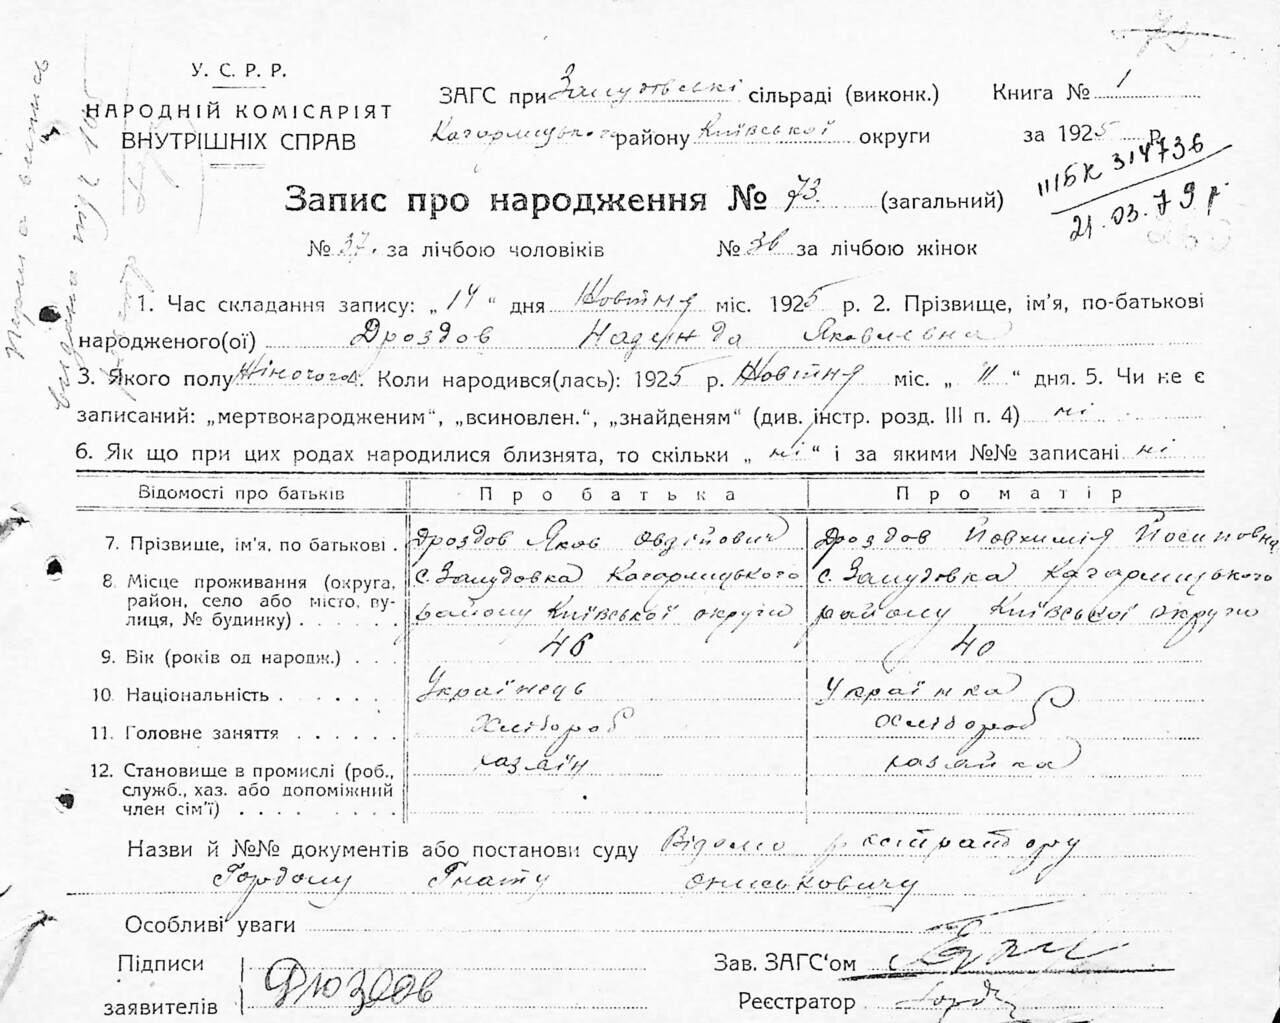 У. С. Р. Р.
НАРОДНІЙ КОМІСАРІЯТ
ВНУТРІШНІХ СПРАВ
ЗАГС при сільраді (виконк.) Книга № 1
Кагарлицького району Київської округи за 1925 р.
ІІІБК 314736
21.03.79 р
Запис про народження № 73. (загальний)
№ 37. за лічбою чоловіків № 36 за лічбою жінок
1. Час складання запису: „ 14 “ дня Жовтня міс. 1925 р. 2. Прізвище, ім'я, по-батькові
народженого(ої) Дроздов Надежда Яковлевна
3. Якого полу Жіночого 4. Коли народився(лась): 1925 р. Жовтня міс. „ 11 “ дня. 5. Чи не є
записаний: „мертвонародженим“, „всиновлен.“, „знайденям“ (див. інстр. розд. III п. 4) ні
6. Як що при цих родах народилися близнята, то скільки „ ні “ і за якими №№ записані ні
Відомості про батьків Про батька Про матір
7. Прізвище, ім'я, по батькові . Дроздов Яков Овдійович Дроздов Йовхимія Йосиповна
8. Місце проживання (округа, район, село або місто, ву- лиця, № будинку) . . . . . с. Кагарлицького району Київської округи с. Кагарлицького району Київської округи
9. Вік (років од народж.) . . . 46 40
10. Національність . . . . . . Українець Українка
11. Головне заняття . . . . . . Хлібороб Хлібороб
12. Становище в промислі (роб., служб., хаз. або допоміжний член сім'ї) . . . . . . . хазаїн хазайка
Назви й №№ документів або постанови суду Відомо реєстратору
Гордому Гнату Ониськовичу
Особливі уваги
Підписи
заявителів Дроздов
Зав. ЗАГС‘ом
Реєстратор